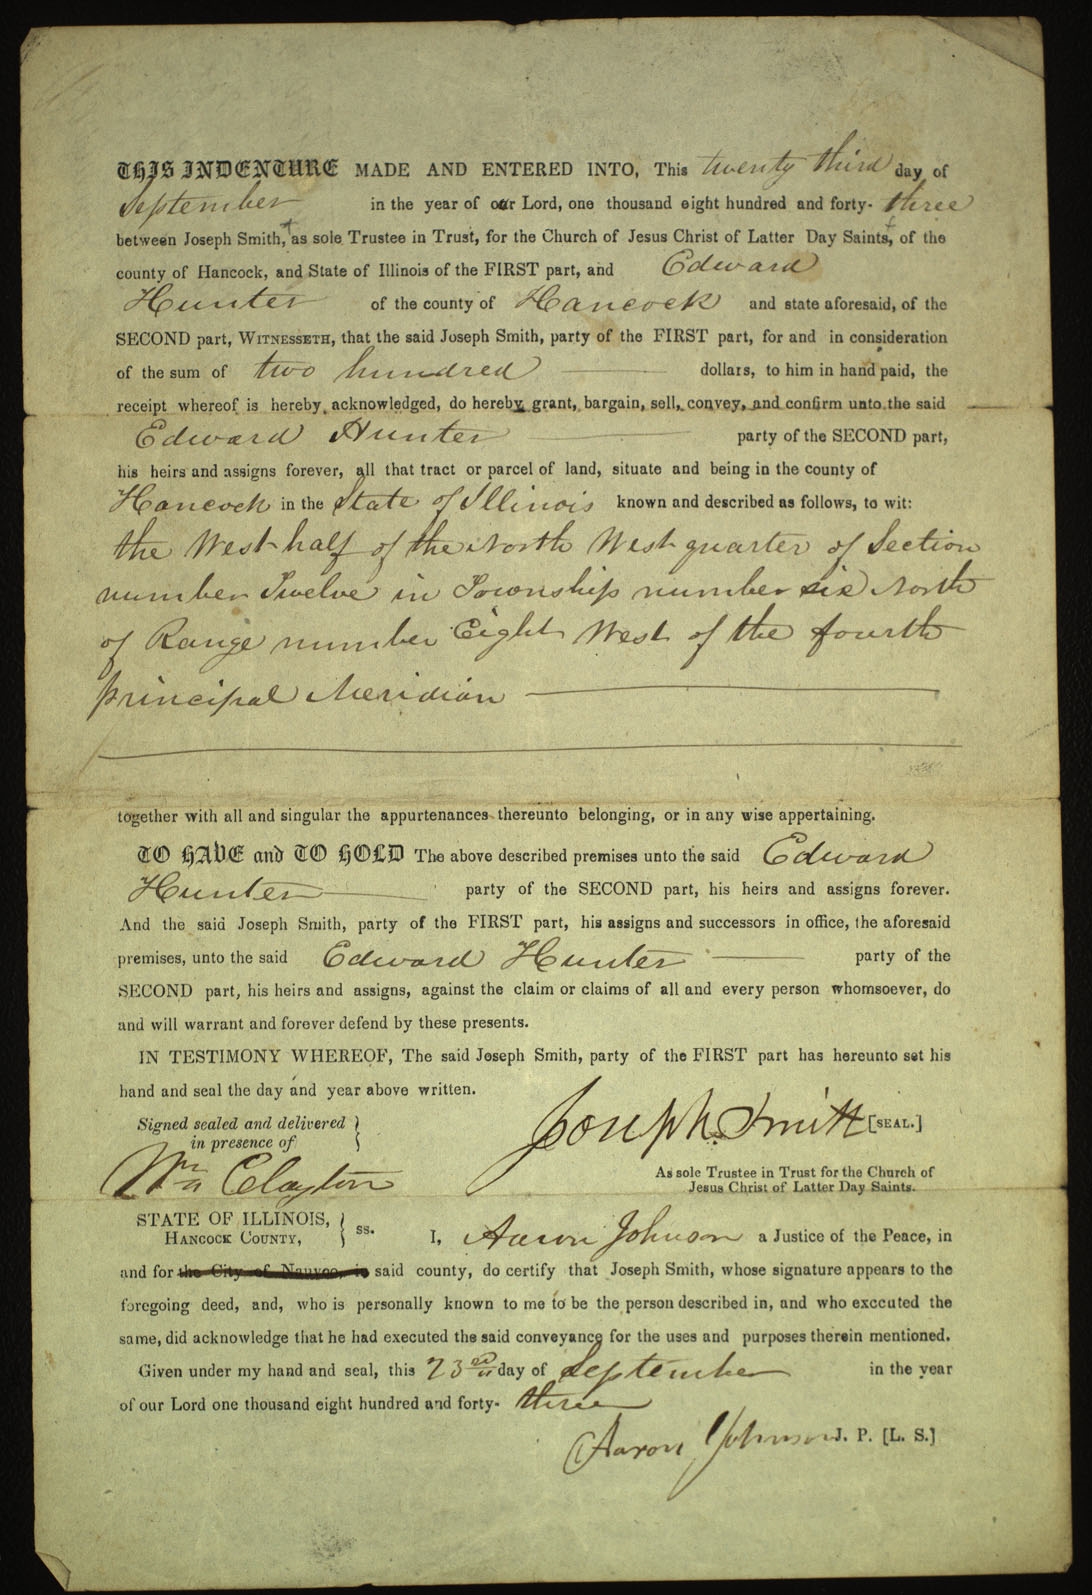 THIS INDENTURE MADE AND ENTERED INTO, This twenty third day of
September in the year of our Lord, one thousand eight hundred and forty- three
between Joseph Smith, + as sole Trustee in Trust, for the Church of Jesus Christ of Latter Day Saints, + of the
county of Hancock, and State of Illinois of the FIRST part, and Edward
Hunter of the county of Hancock and state aforesaid, of the
SECOND part, WITNESSETH, that the said Joseph Smith, party of the FIRST part, for and in consideration
of the sum of two hundred dollars, to him in hand paid, the
receipt whereof is hereby acknowledged, do hereby grant, bargain, sell, convey, and confirm unto the said
Edward Hunter party of the SECOND part,
his heirs and assigns forever, all that tract or parcel of land, situate and being in the county of
Hancock in the State of Illinois known and described as follows, to wit:
the West half of the North West quarter of Section
number Twelve in Township number six North
of Range number Eight West of the fourth
principal Meridian
together with all and singular the appurtenances thereunto belonging, or in any wise appertaining.
TO HAVE and TO HOLD The above described premises unto the said Edward
Hunter party of the SECOND part, his heirs and assigns forever.
And the said Joseph Smith, party of the FIRST part, his assigns and successors in office, the aforesaid
premises, unto the said Edward Hunter party of the
SECOND part, his heirs and assigns, against the claim or claims of all and every person whomsoever, do
and will warrant and forever defend by these presents.
IN TESTIMONY WHEREOF, The said Joseph Smith, party of the FIRST part has hereunto set his
hand and seal the day and year above written.
Signed sealed and delivered }
in presence of }
Joseph Smith [SEAL.]
Wm Clayton
As sole Trustee in Trust for the Church of
Jesus Christ of Latter Day Saints.
STATE OF ILLINOIS, }
HANCOCK COUNTY, } ss. I, Aaron Johnson a Justice of the Peace, in
and for the City of Nauvoo, in said county, do certify that Joseph Smith, whose signature appears to the
foregoing deed, and, who is personally known to me to be the person described in, and who exccuted the
same, did acknowledge that he had executed the said conveyance for the uses and purposes therein mentioned.
Given under my hand and seal, this 23rd day of September in the year
of our Lord one thousand eight hundred and forty- three
Aaron Johnson J. P. [L. S.]